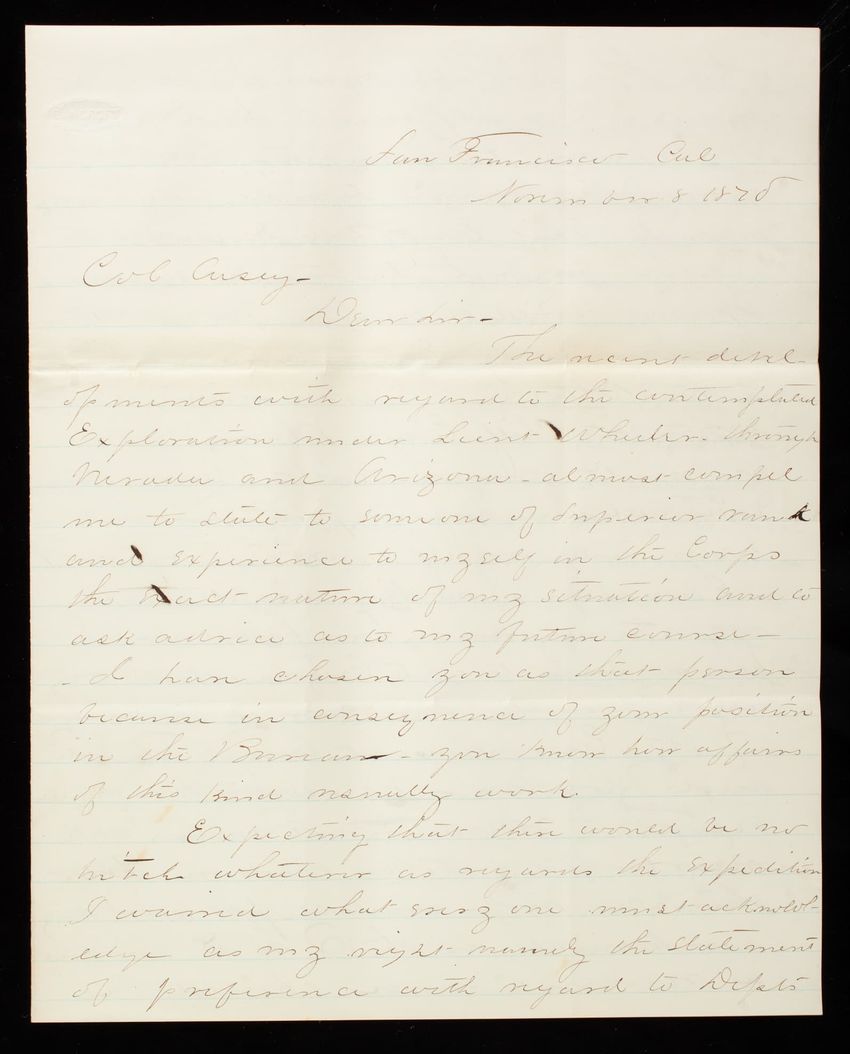 San Francisco Cal
November 8 1870
Col Casey-
Dear Sir-
The recent devel-
opments with regard to the contemplated
Exploration under Lieut Wheeler through
Nevada and Arizona - almost compel
me to state to some one of Superior rank
and experience to myself in the Corps
the exact nature of my situation and to
ask advice as to my future course-
- I have chosen you as that person
because in consequence of your position
in the Bureau - you know how affairs
of this kind usually work.
Expecting that there would be no
hitch whatever as regards the Expedition
I waived what every one must acknowl-
edge as my right namely the statement
of preference with regard to Depts